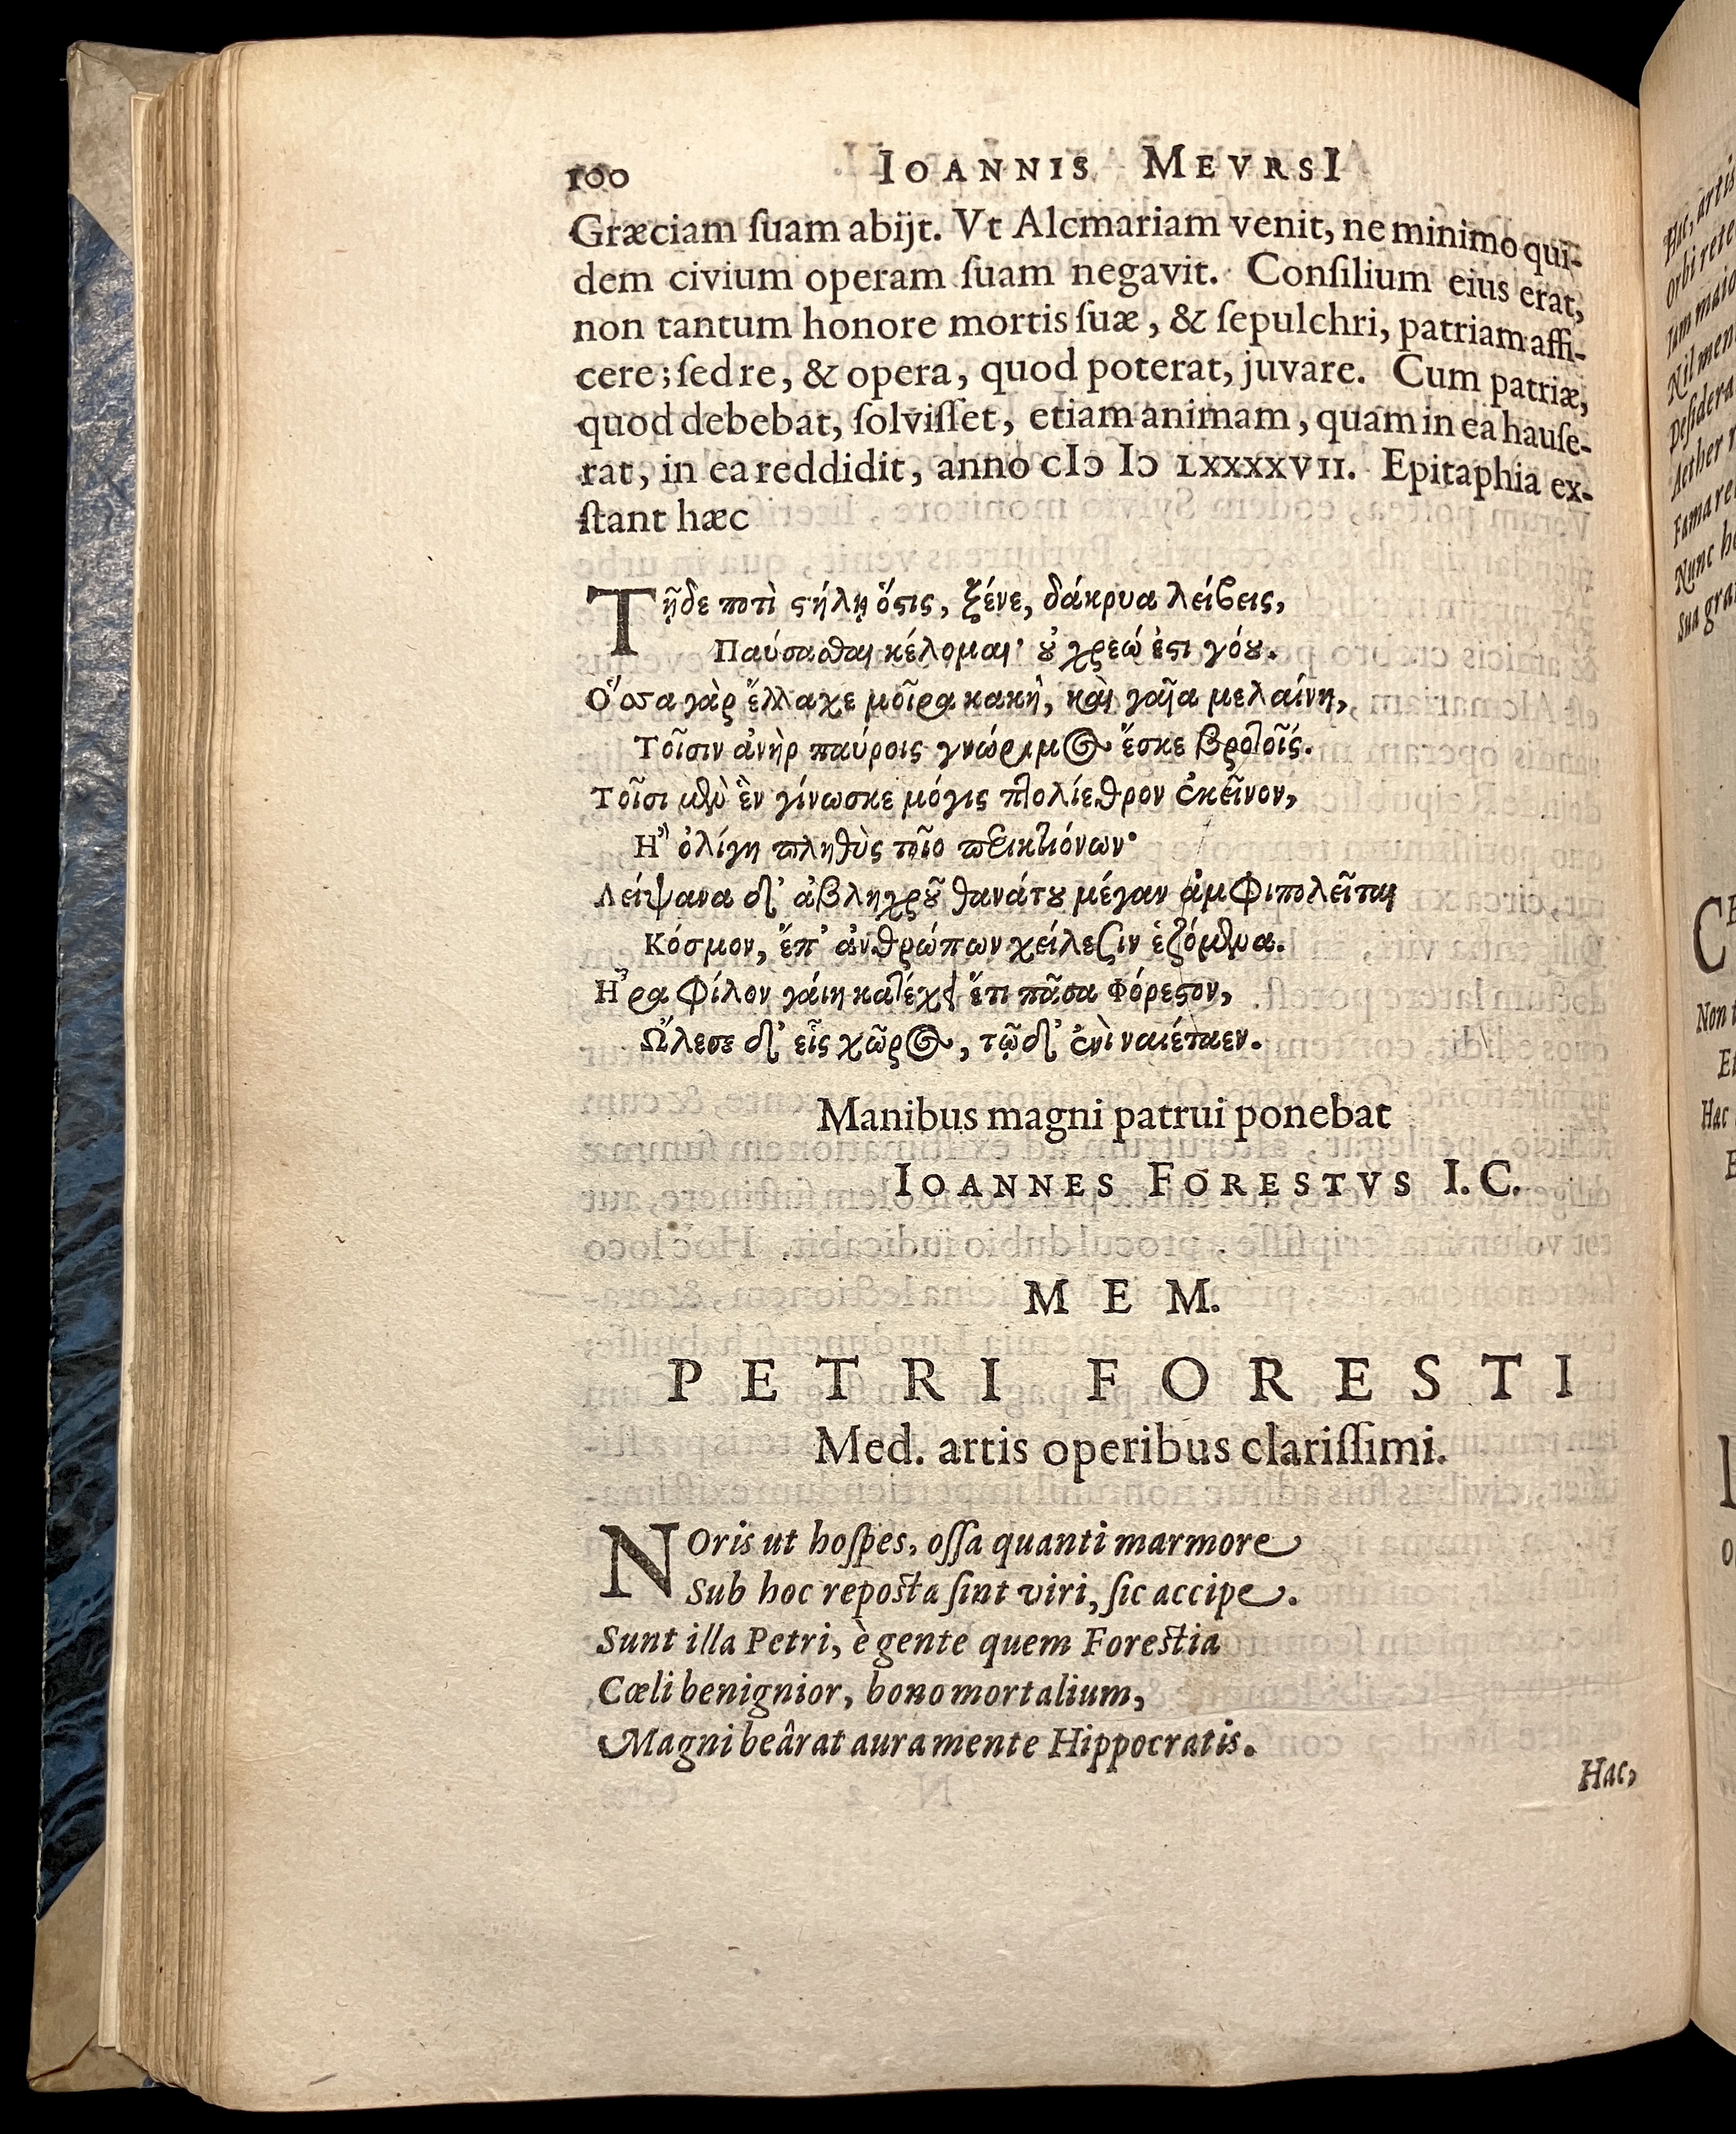 100 IOANNIS MEVRSI
Græciam ſuam abijt. Vt Alcmariam venit, ne minimo qui-
dem civium operam ſuam negavit. Conſilium eius erat,
non tantum honore mortis ſuæ, & ſepulchri, patriam affi-
cere; ſed re, & opera, quod poterat, juvare. Cum patriæ,
quod debebat, ſolviſſet, etiam animam, quam in ea hauſe-
rat, in ea reddidit, anno cIↄ Iↄ LXXXXVII. Epitaphia ex-
ſtant hæc
Τῇδε ποτὶ ϛήλῃ ὅϛις, ξένε, δάκρυα λείβεις,
Παύσασθαι κέλομαι· ȣ̓ χρεώ ἐϛι γόȣ.
Ὅσσα γὰρ ἔλλαχε μοῖρα κακὴ, καὶ γαῖα μελαίνη,
Τοῖσιν ἀνὴρ παύροις γνώριμος ἔσκε βροτοῖς.
Τοῖσι μὲν ἓν γίνωσκε μόγις πτολίεθρον ἐκεῖνον,
Ἢ ὀλίγη πληθὺς τοῖο περικτιόνων·
Λείψανα δ' ἀβληχρȣ͂ θανάτȣ μέγαν ἀμφιπολεῖται
Κόσμον, ἔπ' ἀνθρώπων χείλεσιν ἑζόμενα.
Ἦ ρα φίλον γάιη κατέχει ἔτι πᾶσα Φόρεϛον,
Ὤλεσε δ' εἷς χῶρος, τῷ δ' ἐνὶ ναιέταεν.
Manibus magni patrui ponebat
IOANNES FORESTVS I. C.
MEM.
PETRI FORESTI
Med. artis operibus clariſſimi.
NOris ut hoſpes, oſſa quanti marmore
Sub hoc repoſta ſint viri, ſic accipe.
Sunt illa Petri, è gente quem Foreſtia
Cœli benignior, bono mortalium,
Magni beârat aura mente Hippocratis.
Hac,